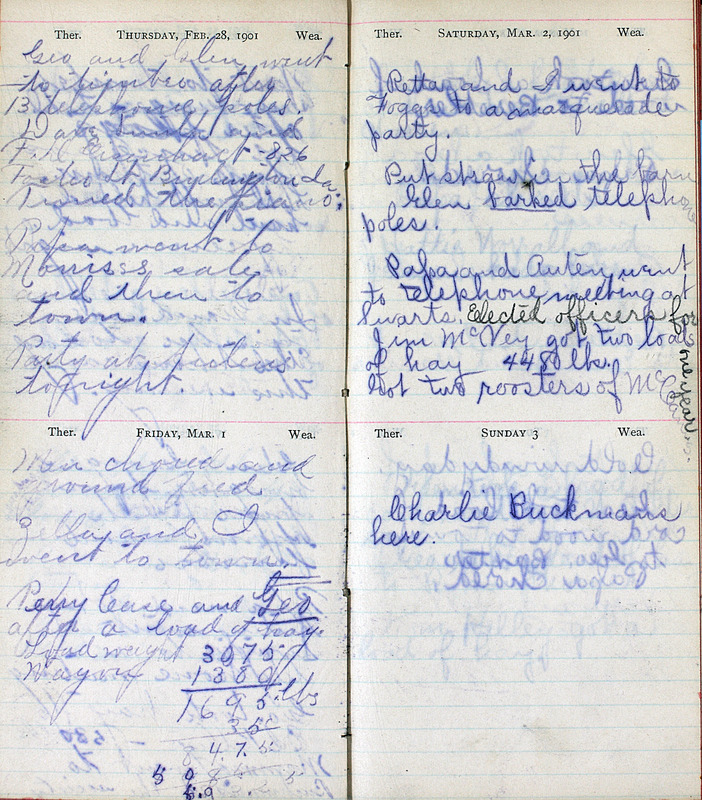 Ther. THURSDAY, FEB. 28, 1901 Wea.
Geo and Glen went
to timber after
13 telephone poles.
and
826
tuned the piano.
Papa went to
Morriss sale
and then to
town.
Party at
tonight.
Ther. FRIDAY, MAR. 1 Wea.
Men chored and
ground feed
Zella and I
went to town.
Perry Case and Geo
after a load of hay.
Load weight 3075
Wagon 1380
1695 lbs
35
8 4.7 5
5 0 8 5
5.9
Ther. SATURDAY, MAR. 2, 1901 Wea.
Retta and I went to
Foggs to a masquerade
party.
Put straw in the barn
Glen barked telephone
poles.
Papa and Auten went
to telephone meeting at
Swarts. Elected officers for
one year.
Jim McVey got two loads
of hay 4480 lbs.
Got two roosters of
Ther. SUNDAY 3 Wea.
Charlie Buckmans
here.